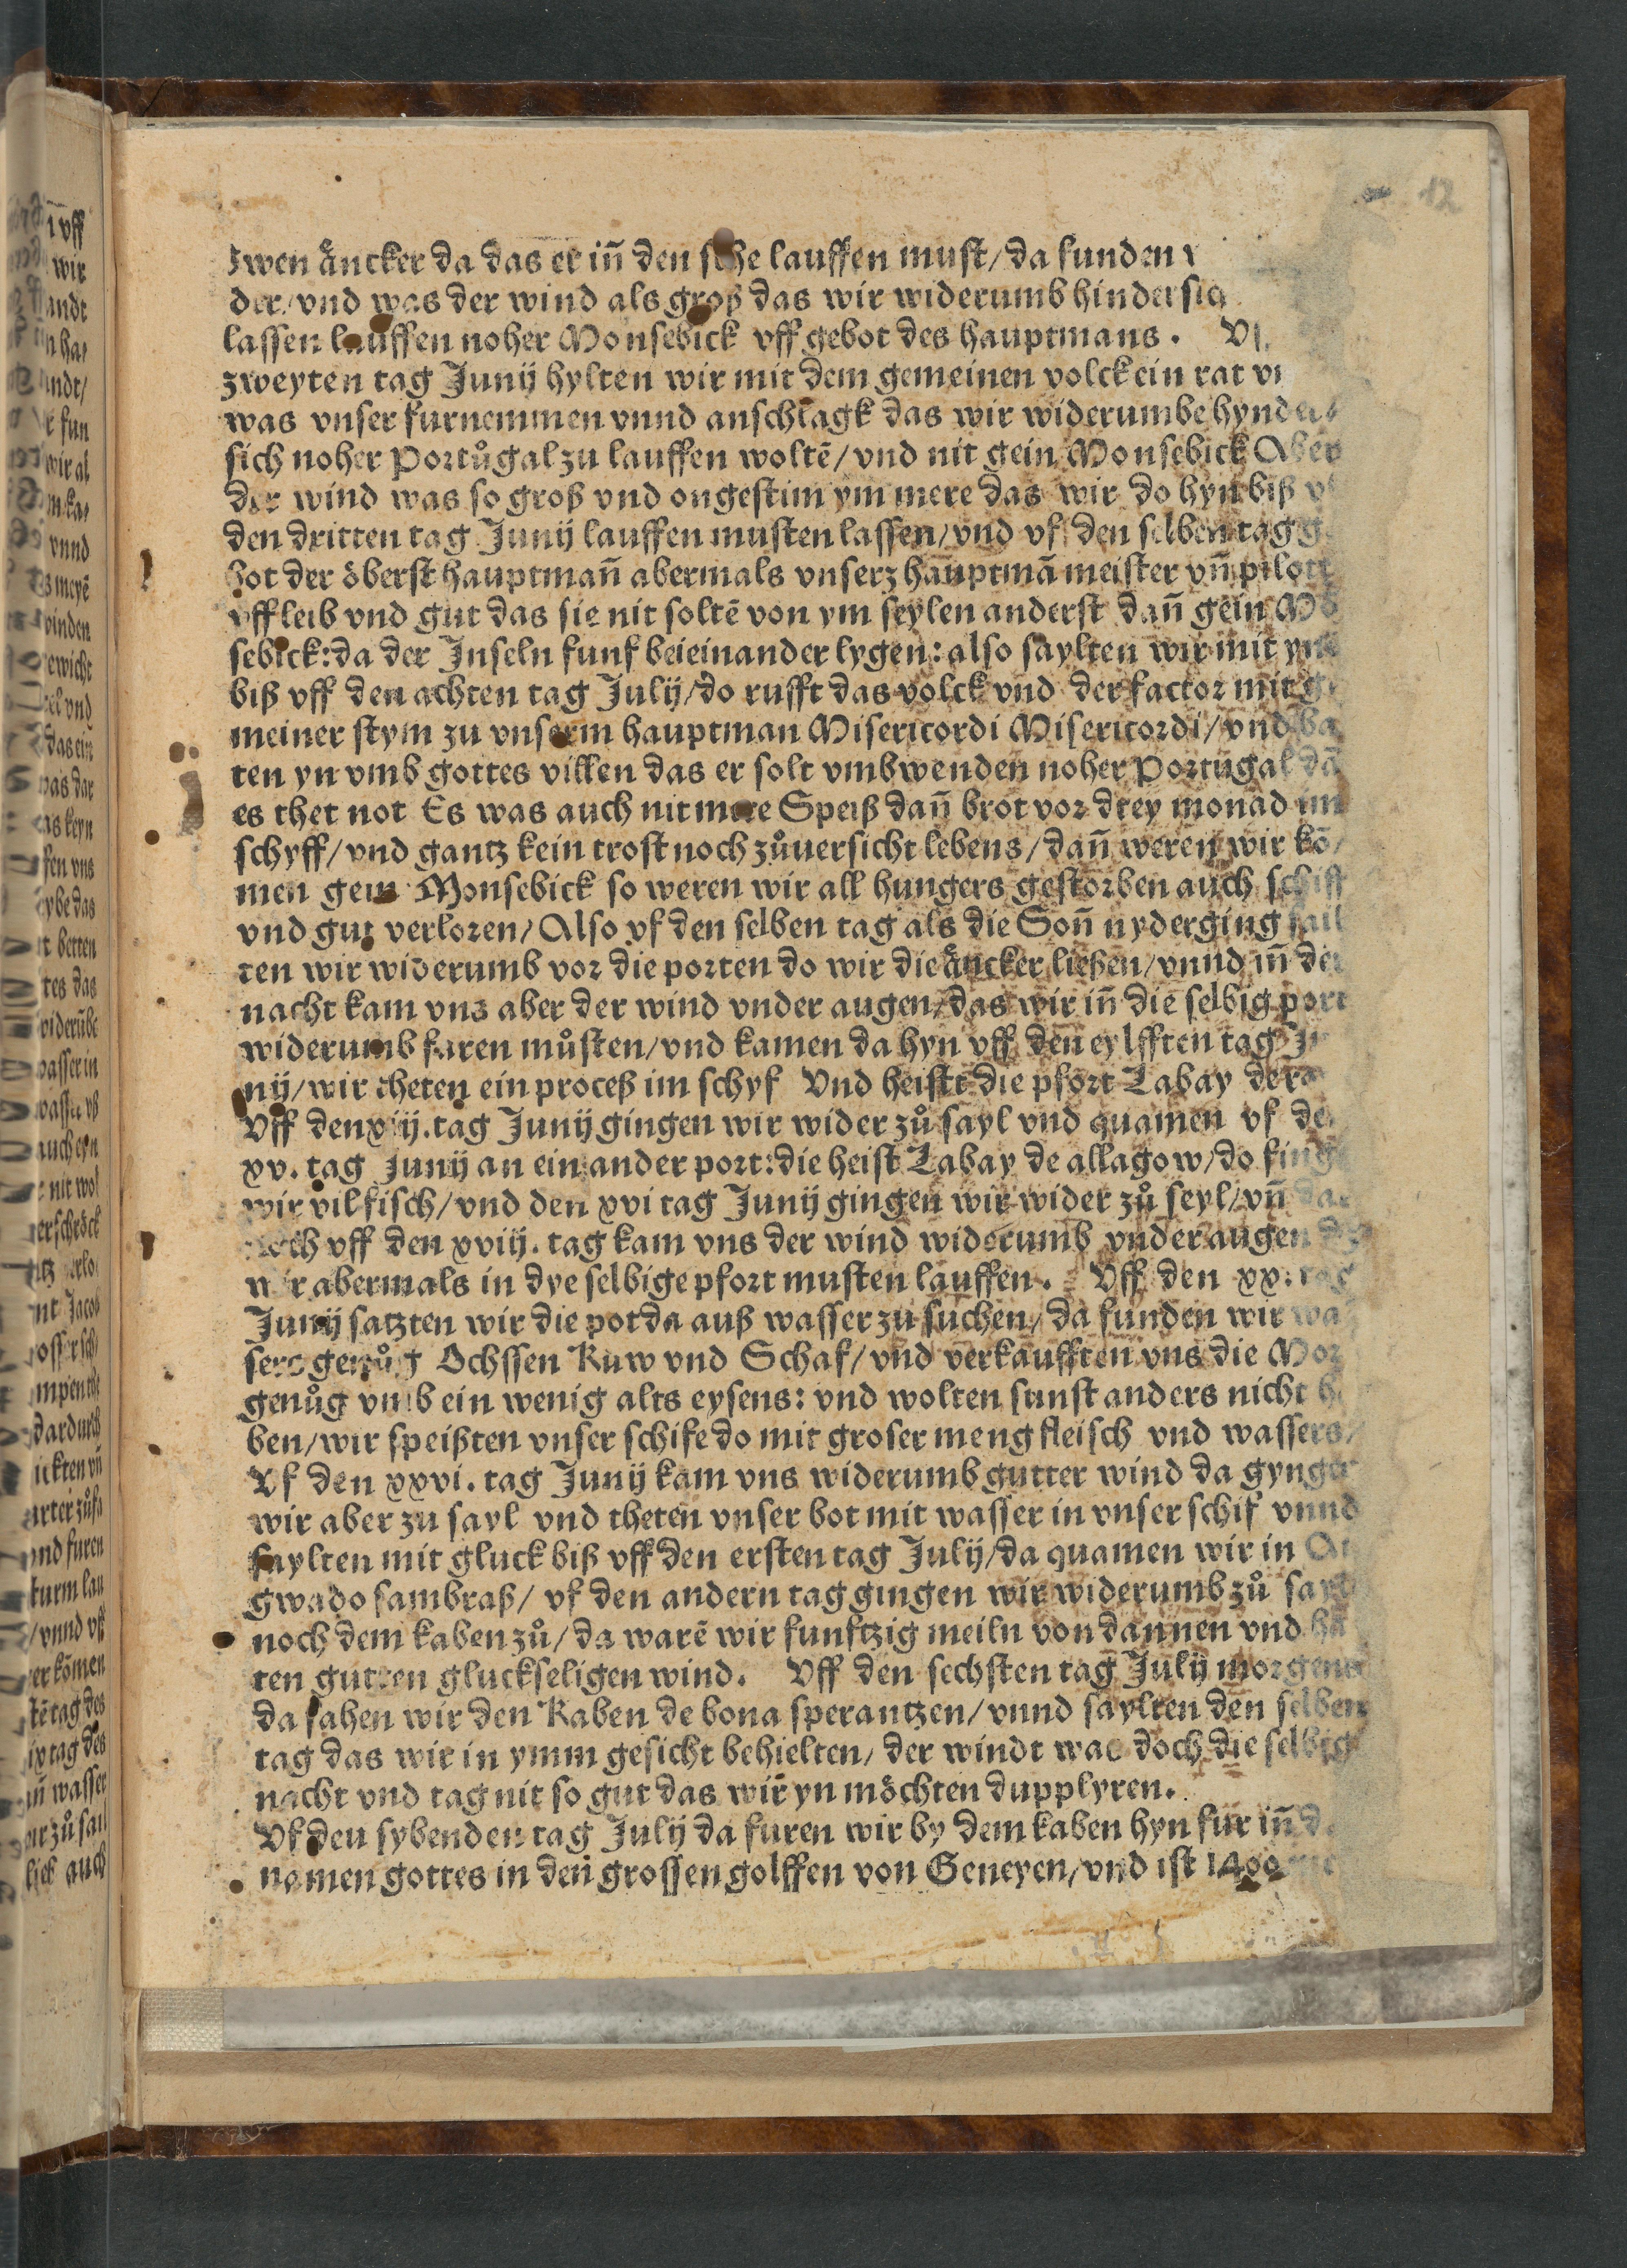 12
zwen äncker da das er in̄ den sehe lauffen must/da funden
der/vnd was der wind als groß das wir widerumb hindersich
lassen lauffen noher Monsebick vff gebot des hauptmans.
zweyten tag Junij hylten wir mit dem gemeinen volck ein rat
was vnser furnemmen vnnd anschlagk das wir widerumbe hynder
sich noher Portůgal zu lauffen woltē/vnd nit gein Monsebick Aber
der wind was so groß vnd ongestim ym mere das wir do hyn biß
den dritten tag Junij lauffen musten lassen/vnd vf den selben tag
bot der öberst hauptman̄ abermals vnserz hauptmā meister vn̄ pilott
vff leib vnd gut das sie nit soltē von ym seylen anderst dan̄ gein
sebick:da der Jnseln funf beieinander lygen:also saylten wir mit
biß vff den achten tag Julij/do rufft das volck vnd der factor mit
meiner stym zu vnserm hauptman Misericordi Misericordi/vnd ba
ten yn vmb gottes villen das er solt vmbwenden noher Portugal dā
es thet not Es was auch nit mere Speiß dan̄ brot vor drey monad im
schyff/vnd gantz kein trost noch zůuersicht lebens/dan̄ weren wir kō
men gein Monsebick so weren wir all hungers gestorben auch schiff
vnd gut verloren/Also vf den selben tag als die Son̄ nyderging sail
ten wir widerumb vor die porten do wir die äncker ließen/vnnd in̄ der
nacht kam vns aber der wind vnder augen/das wir in̄ die selbig port
widerumb faren můsten/vnd kamen da hyn vff den eylfften tag Ju
nij/wir theten ein proceß im schyf Vnd heistt die pfort Labay
Vff den xiij.tag Junij gingen wir wider zů sayl vnd quamen vf
xv.tag Junij an ein ander port:die heist Labay de allagow/do finge
wir vil fisch/vnd den xvi tag Junij gingen wir wider zů seyl/vn̄ dar
noch vff den xviij.tag kam vns der wind widerumb vnder augen
wir abermals in dye selbige pfort musten lauffen. Vff den xx.tag
Junij satzten wir die pot da auß wasser zu suchen/da funden wir was
sers genůg Ochssen Kuw vnd Schaf/vnd verkaufften vns die Mor
genůg vmb ein wenig alts eysens:vnd wolten sunst anders nicht
ben/wir speißten vnser schife do mit groser meng fleisch vnd wassers/
Vf den xxvi.tag Junij kam vns widerumb gutter wind da gyngen
wir aber zu sayl vnd theten vnser bot mit wasser in vnser schif vnnd
saylten mit gluck biß vff den ersten tag Julij/da quamen wir in
gwado sambraß/vf den andern tag gingen wir widerumb zů sayl
noch dem kaben zů/da warē wir funftzig meiln von dannen vnd
ten gutten gluckseligen wind. Vff den sechsten tag Julij morgens
da sahen wir den Kaben de bona sperantzen/vnnd saylten den selben
tag das wir in ymm gesicht behielten/der windt was doch die selbig
nacht vnd tag nit so gut das wir yn möchten dupplyren.
Vf den sybenden tag Julij da furen wir by dem kaben hyn für in̄
namen gottes in den grossen golffen von Geneyen/vnd ist 1400